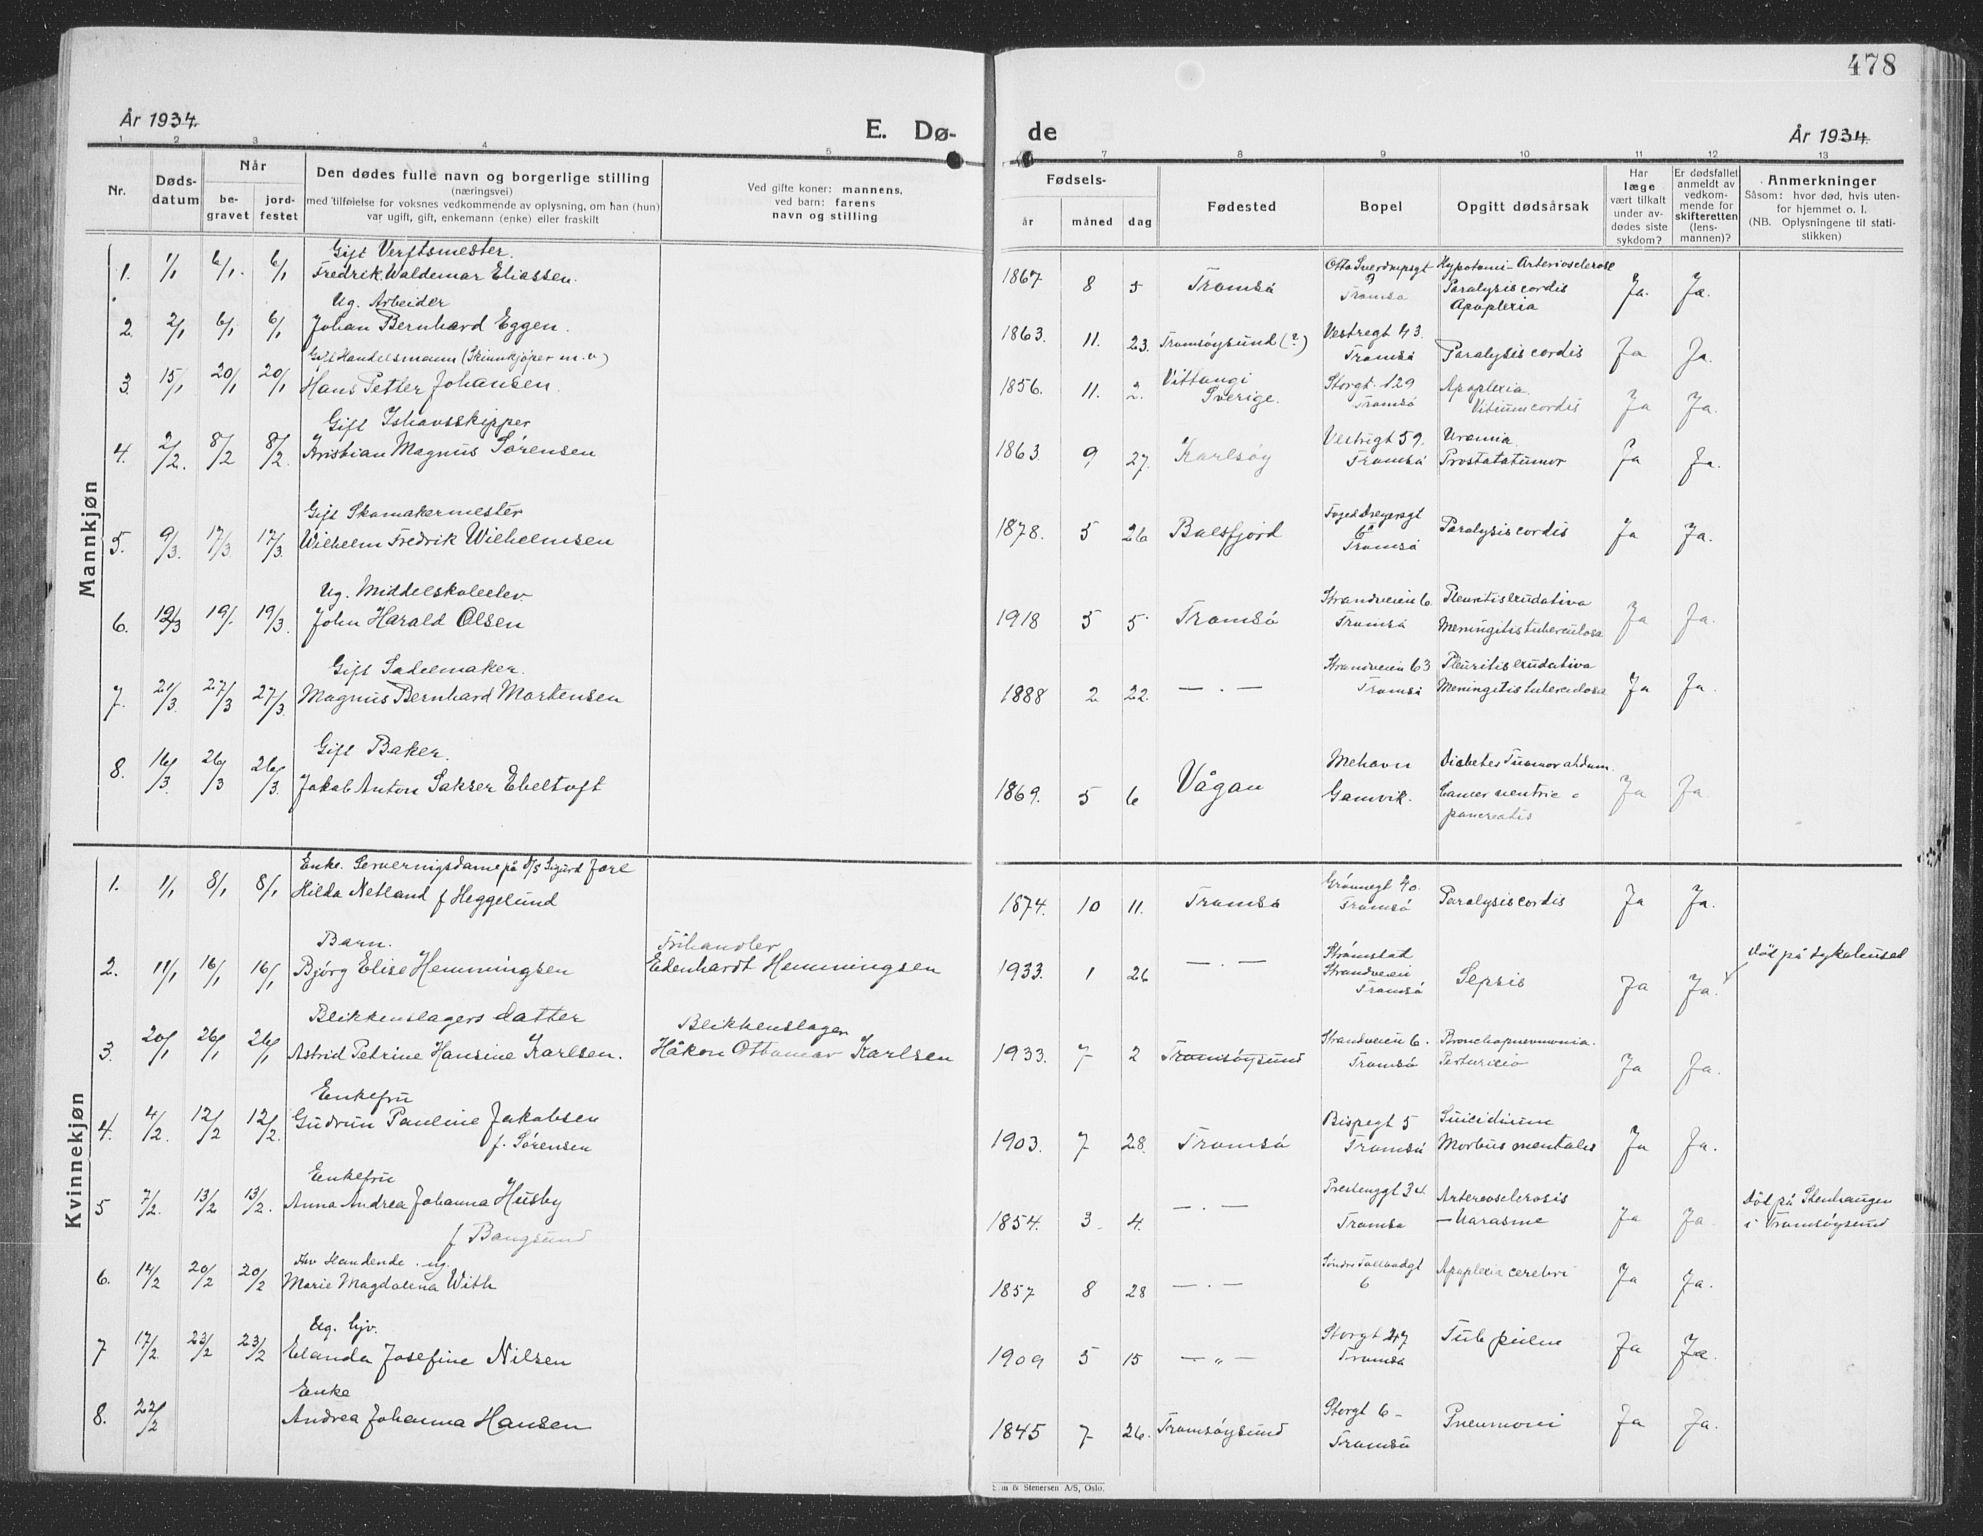 478
År 1934.
E. Dø-
de
År 1934.
1 2 3 4 5 7 8 9 10 11 12 13
Nr.
Døds-
datum
Når
be-
gravet
jord-
festet
Den dødes fulle navn og borgerlige stilling
(næringsvei)
med tilføielse for voksnes vedkommende av oplysning, om han (hun)
var ugift, gift, enkemann (enke) eller fraskilt
Ved gifte koner: mannens,
ved barn: farens
navn og stilling
Fødsels-
år
måned
dag
Fødested
Bopel
Opgitt dødsårsak
Har
læge
vært tilkalt
under av-
dødes siste
sykdom?
Er dødsfallet
anmeldt av
vedkom-
mende for
skifteretten
(lens-
mannen)?
Anmerkninger
Såsom: hvor død, hvis uten-
for hjemmet o. l.
(NB. Oplysningene til stati-
stikken)
Mannkjøn
Gift Verftsmester.
1. 1/1 6/1. 6/1 Fredrik Waldemar Eliassen. 1867 8 5 Tromsø Otto Sverdrupsgt Tromsø Hypotomi-Arteriosclerose Paralysis cordis Apoplexia Ja. Ja.
Ug. Arbeider
2. 2/1 6/1 6/1 Johan Bernhard Eggen. 1863. 11. 23. Tromsøysund (?) Vestregt 43. Tromsø Paralysis cordis Ja Ja.
Gift Handelsmann (Skinnkjøper m.v)
3. 15/1 20/1 20/1 Hans Petter Johansen. 1856. 11. 2. Vittangi Sverige. Storgt. 129 Tromsø Apoplexia Vitium cordis Ja Ja.
Gift Ishavsskipper
4. 2/2. 8/2 8/2. Kristian Magnus Sørensen 1863. 9 27. Karlsøy Vestregt 59. Tromsø Uræmia. Prostatatumor Ja Ja.
Gift Skomakermester
5. 9/3. 17/3 17/3. Wilhelm Fredrik Wilhelmsen 1878. 5 26 Balsfjord Foged Dreyersgt 6a Tromsø Paralysis cordis Ja Ja.
Ug. Middelskoleelev
6. 12/3 19/. 19/3. John Harald Olsen 1918 5 5 Tromsø Strandveien 6. Tromsø Pleuritis exudativa Meningitis tuberculosa Ja Ja.
Gift Sadelmaker.
7. 21/3. 27/3 27/3. Magnus Bernhard Mortensen 1888 2 22. — . — Strandveien 63 Tromsø Pleuritis exudativa Meningitis tuberculosa Ja Ja.
Gift Baker.
8. 16/3. 26/3 26/3. Jakob Anton Sakser Ebeltoft 1869. 5 6 Vågan Mehavn Gamvik. Diabetes Tumor abdum. Cancer ventric - pancreatis Ja Ja
Kvinnekjøn
Enke. Serveringsdame på D/S Sigurd Jarl
1. 1/1 8/1 8/1 Hilda Netland f Heggelund 1874. 10 11. Tromsø Grønnegt 40. Tromsø Paralysis cordis Ja Ja.
Barn. Frihandler
2. 11/1 16/1 16/1 Bjørg Elise Hemmingsen Edenhardt Hemmingsen 1933. 1 26 — . — Strømstad Strandveien Tromsø Sepsis Ja Ja. Död på sykehuset
Blikkenslagers datter Blikkenslager
3. 20/1 26/1 26/1 Astrid Petrine Hansine Karlsen. Håkon Ottomar Karlsen 1933. 7 2 Tromsøysund Strandveien 6. Tromsø Bronchopneumonia. Ja Ja.
Enkefru
4. 4/2. 12/2 12/2. Gudrun Pauline Jakobsen f. Sørensen 1903. 7 28. Tromsø Bispegt 5 Tromsø Suicidium Morbus mentalis Ja Ja.
Enkefru
5 7/2. 13/2 13/2. Anna Andrea Johanna Husby f Bangsund 1854. 3 4. — . — Prestengt 34 Tromsø Arterosclerosis Ja Ja. Död på Stenhaugen i Tromsøysund
Handende. ug.
6. 14/2 20/2 20/2 Marie Magdalena With 1857 8 28 — . — Søndre Tollbodgt 6 Apoplexia cerebri Ja Ja.
Ug. hjv.
7 17/2. 23/2 23/2 Elanda Josefine Nilsen 1909 5 15 — „ — Storgt 247 Tromsø Tub pulm Ja Ja.
Enke
8. 22/2 Andrea Johanna Hansen 1845 7 26. Tromsøysund Storgt 6- Tromsø Pneumoni Ja Ja.
& Stenersen A/S, Oslo.